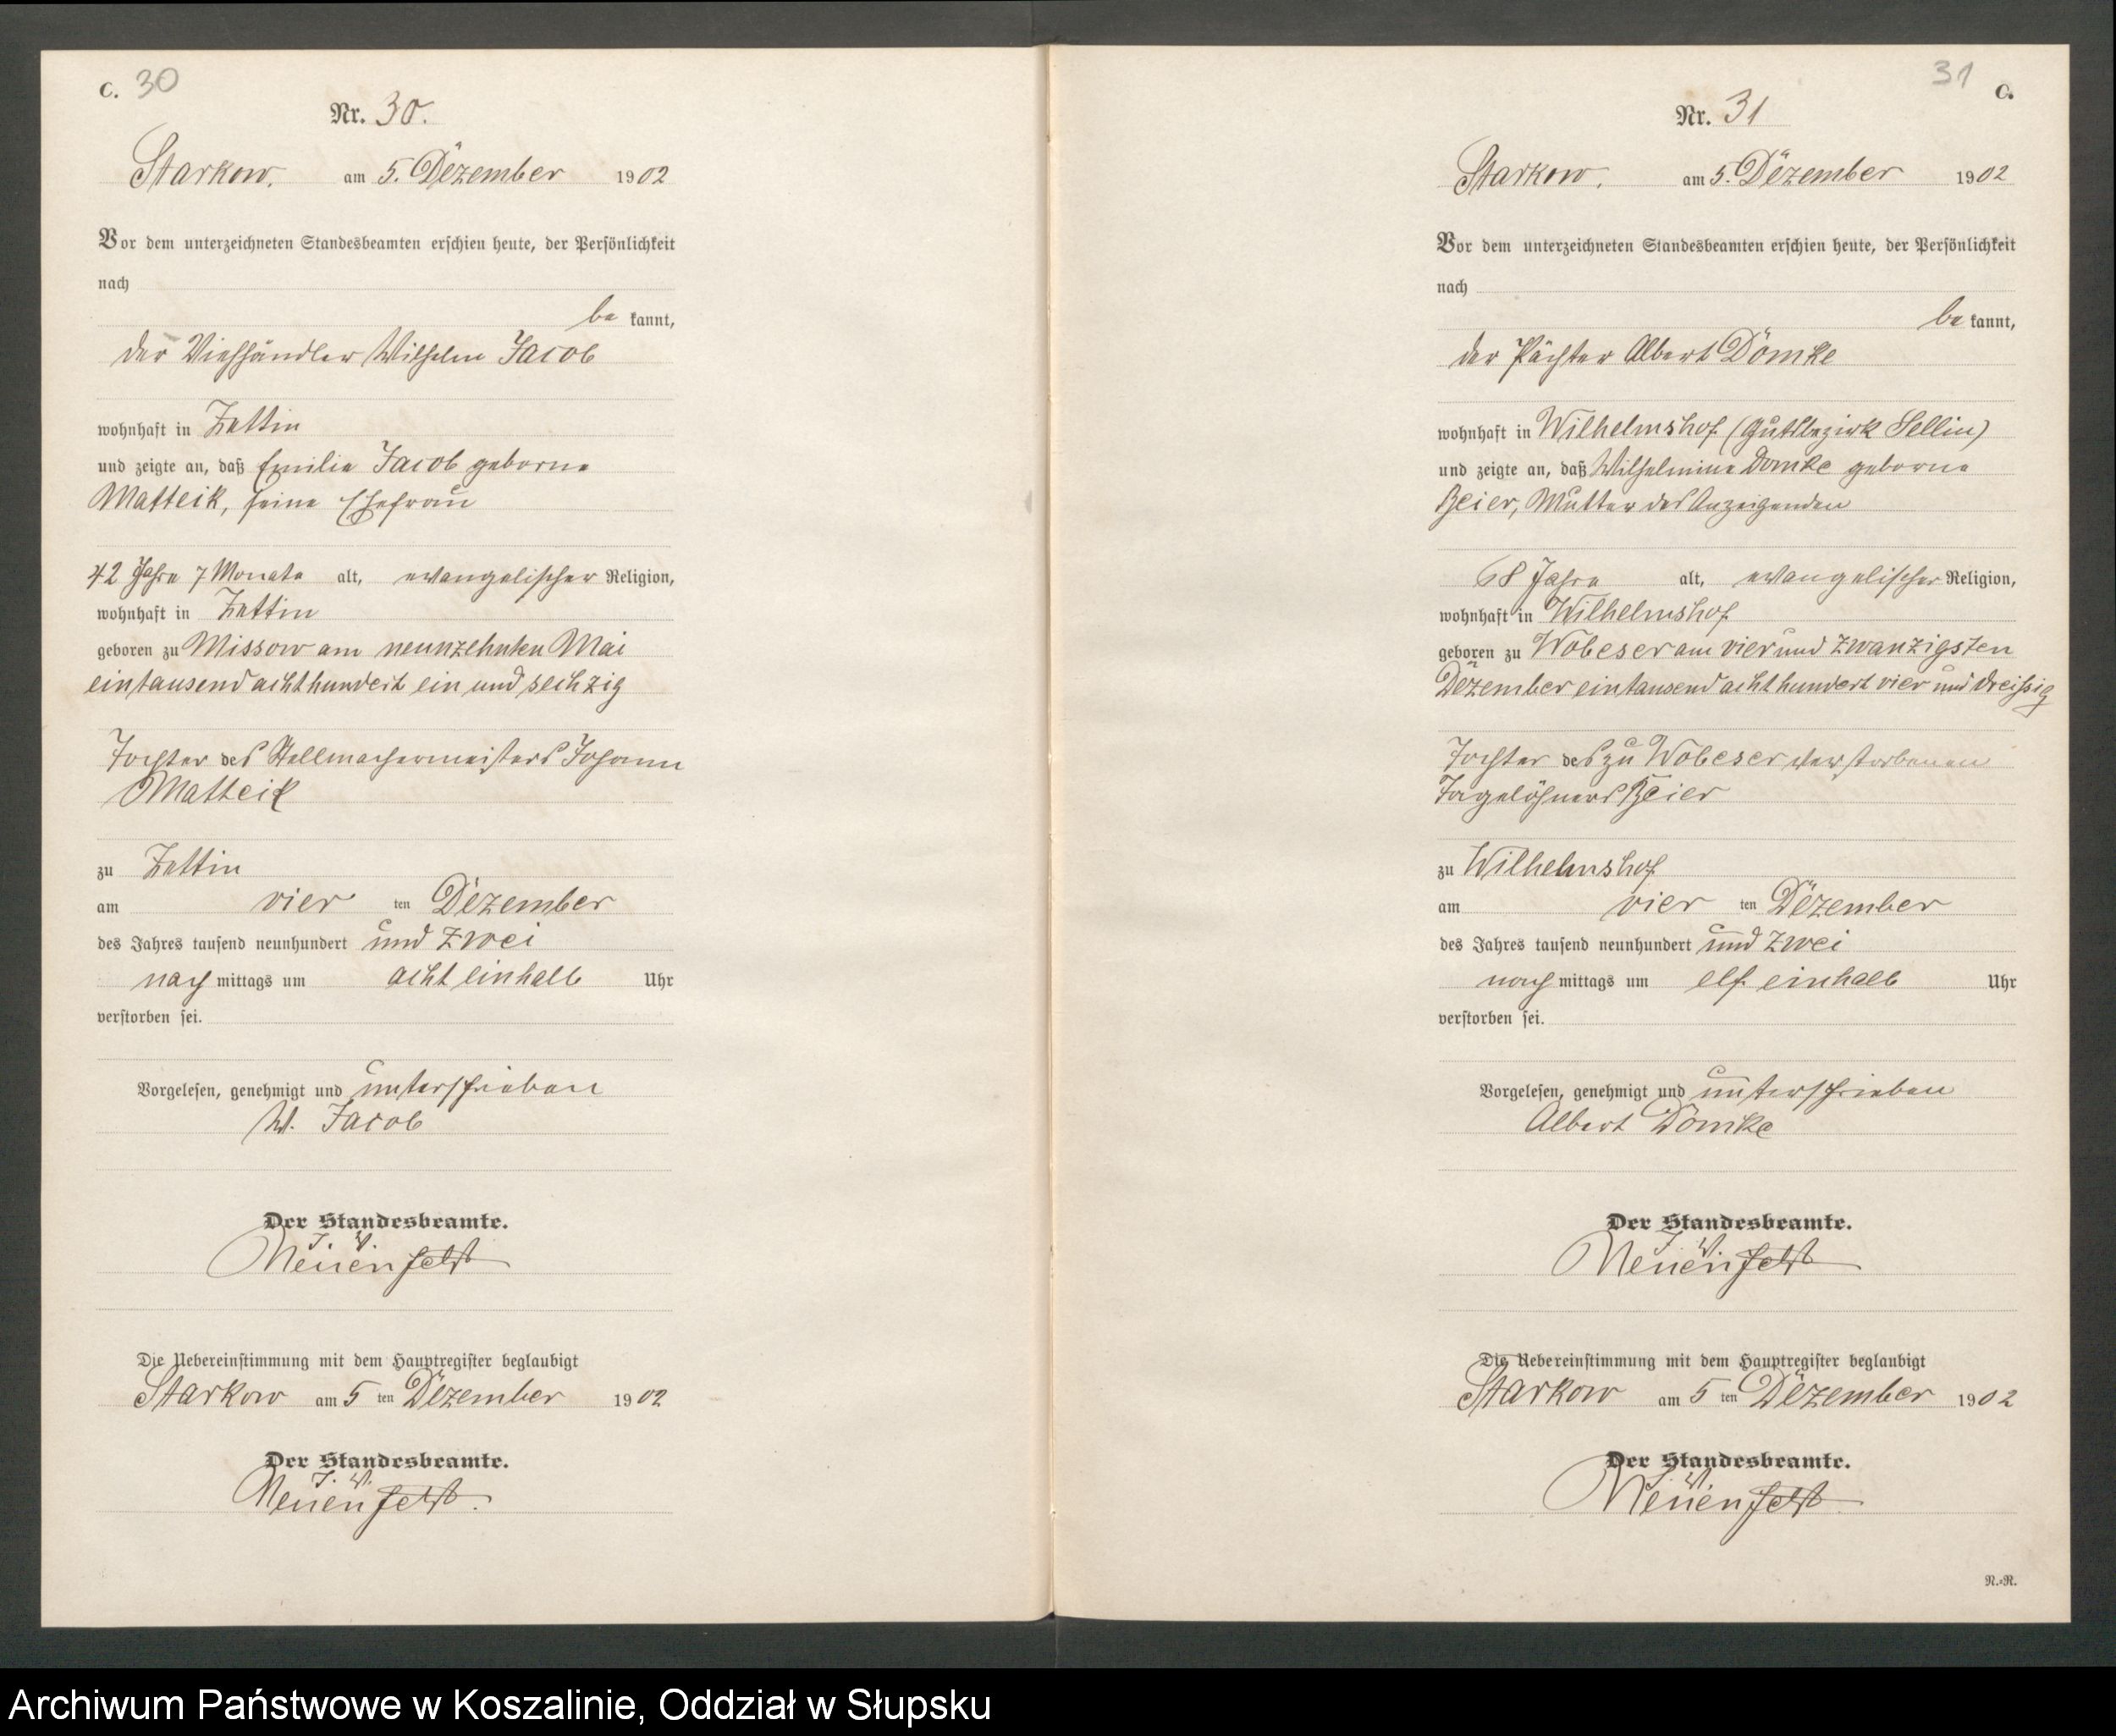 C. 30
Nr. 30.
Starkow. am 5. Dezember 1902
Vor dem unterzeichneten Standesbeamten erschien heute, der Persönlichkeit
nach
be kannt,
der Viehhändler Wilhelm Jacob
wohnhaft in Zettin
und zeigte an, daß Emilie Jacob geborne
Matteik, seine Ehefrau
42 Jahre 7 Monate alt, evangelischer Religion,
wohnhaft in Zettin
geboren zu Missow am neunzehnten Mai
eintausend achthundert ein und sechzig
Tochter des Stellmachermeisters Johann
Matteik
zu Zettin
am vier ten Dezember
des Jahres tausend neunhundert und zwei
nach mittags um acht einhalb Uhr
verstorben sei.
Vorgelesen, genehmigt und unterschrieben
W. Jacob
Der Standesbeamte.
J. V.
Neuenfeldt
Die Uebereinstimmung mit dem Hauptregister beglaubigt
Starkow am 5 ten Dezember 1902
Der Standesbeamte.
J. V.
Neuenfeldt.
31 C.
Nr. 31
Starkow. am 5. Dezember 1902
Vor dem unterzeichneten Standesbeamten erschien heute, der Persönlichkeit
nach
be kannt,
der Pächter Albert Domke
wohnhaft in Wilhelmshof (Gutsbezirk Sellin)
und zeigte an, daß Wilhelmine Domke geborne
Beier, Mutter des Anzeigenden
68 Jahre alt, evangelischer Religion,
wohnhaft in Wilhelmshof
geboren zu Wobeser am vier und zwanzigsten
Dezember eintausend achthundert vier und dreißig
Tochter des zu Wobeser verstorbenen
Tagelöhners Beier
zu Wilhelmshof
am vier ten Dezember
des Jahres tausend neunhundert und zwei
nach mittags um elf einhalb Uhr
verstorben sei.
Vorgelesen, genehmigt und unterschrieben
Albert Domke
Der Standesbeamte.
J. V.
Neuenfeldt
Die Uebereinstimmung mit dem Hauptregister beglaubigt
Starkow am 5 ten Dezember 1902
Der Standesbeamte.
J. V.
Neuenfeldt
N.=N.
Archiwum Państwowe w Koszalinie, Oddział w Słupsku